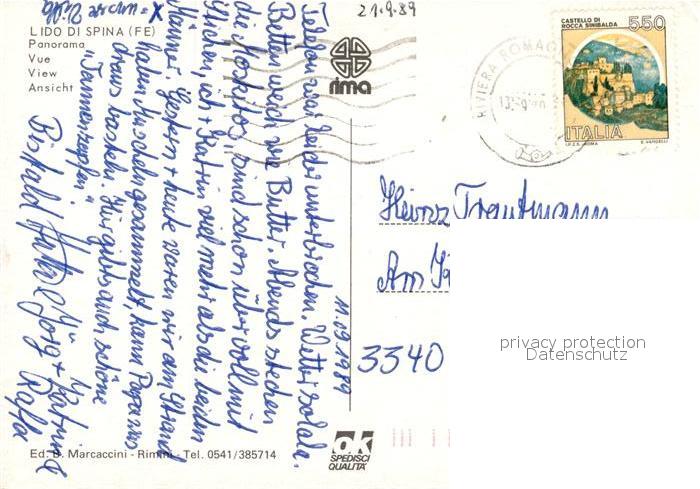 21.9.89
LIDO DI SPINA (FE)
Panorama
Vue
View
Ansicht
rima
x = unsere Villa
Telefon war leider unterbrochen. Wetter so lala.
Betten weich wie Butter. Abends stechen
die Moskitos, sind schon übervoll mit
Stichen, ich + Katrin viel mehr als die beiden
Männer. Gestern + heute waren wir am Strand
haben Muscheln gesammelt, kann Papa was
draus basteln. Hier gibts auch schöne
"Tannenzapfen."
Bis bald
Jörg + Katrin &
11.09.1989
RIVIERA ROMAG
CASTELLO DI
ROCCA SINIBALDA
550
ITALIA
I.P.Z.S. ROMA
E. VANGELLI
Heinz Trautmann
Am
3340
privacy protection
Datenschutz
Ed. B. Marcaccini - Rimini - Tel. 0541/385714
ok
SPEDISCI
QUALITÀ